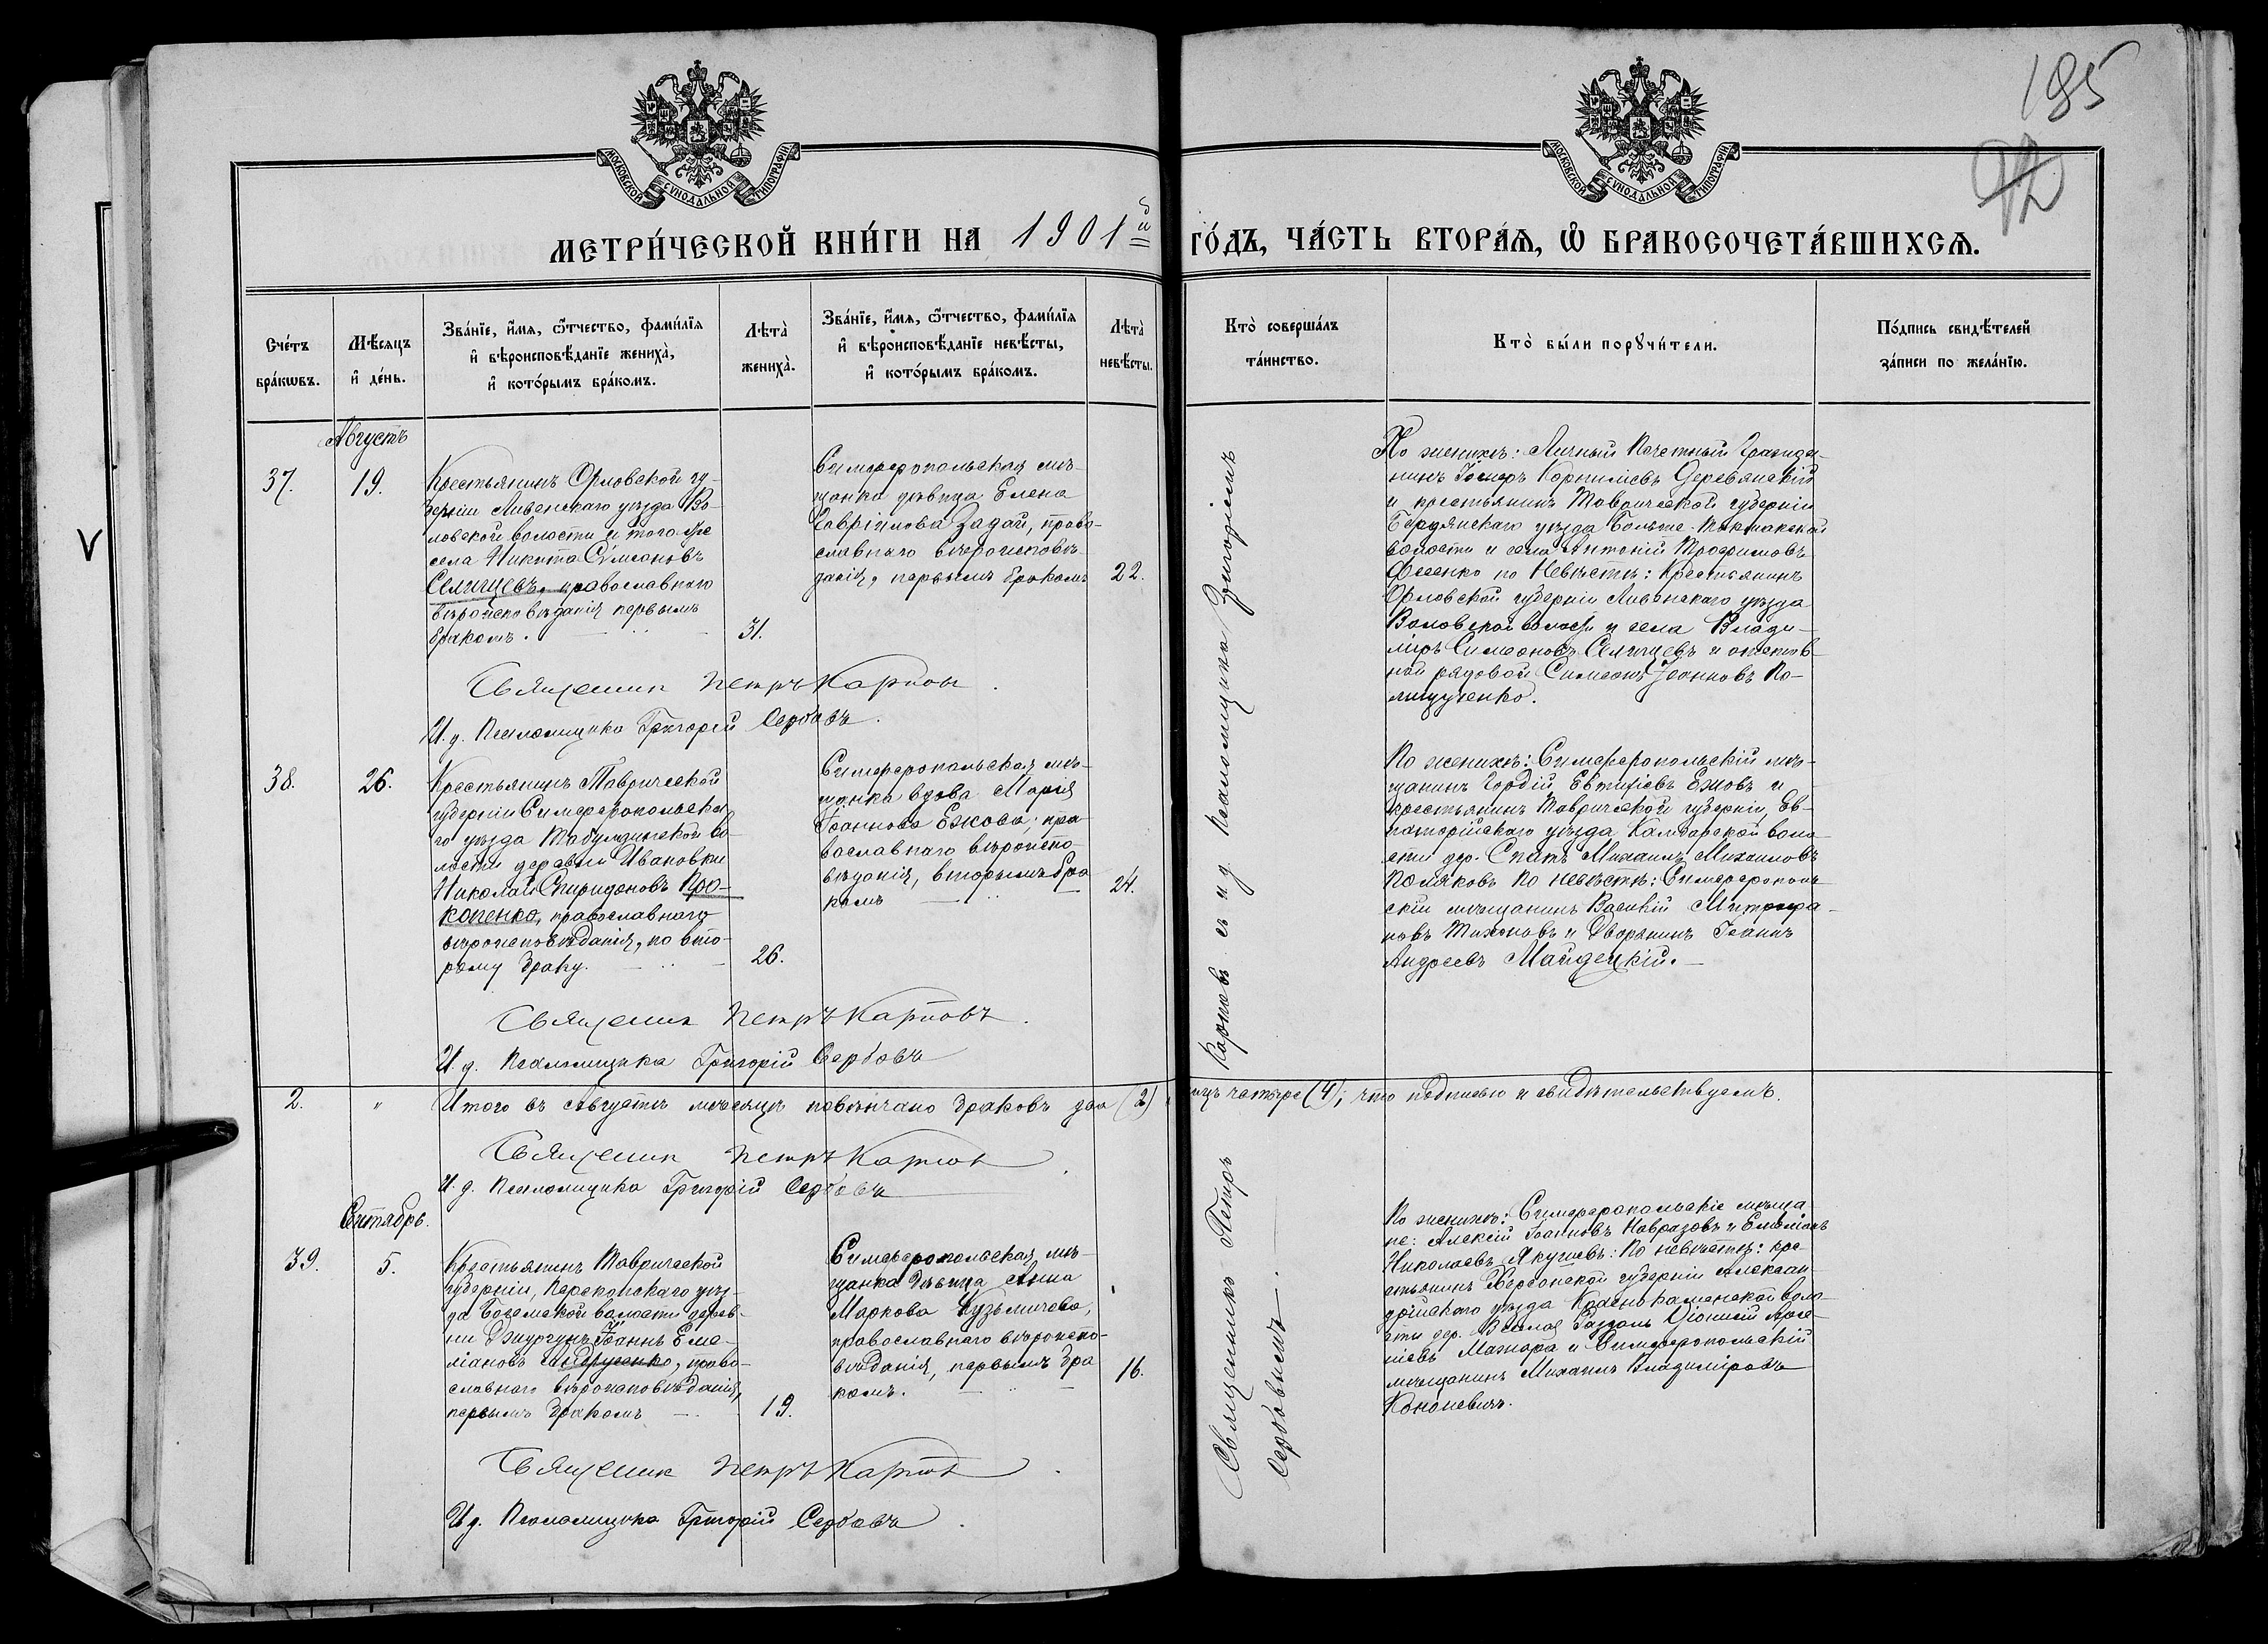 195
92
МОСКОВСКОЙ СѴНОДАЛЬНОЙ ТИПОГРАФІИ
МОСКОВСКОЙ СѴНОДАЛЬНОЙ ТИПОГРАФІИ
МЕТРИ́ЧЕСКОЙ КНИ́ГИ НА 1901й ГО́ДЪ, ЧА́СТЬ ВТОРА́Ѧ, Ѡ҆ БРАКОСОЧЕТА́ВШИХСѦ.
Сче́тъ
бра́кѡвъ.
Мѣ́сяцъ
и҆ де́нь.
Зва́нїе, и҆́мѧ, ѻ҆́тчество, фами́лїѧ
и҆ вѣроисповѣ́данїе жениха̀,
и҆ кото́рымъ бра́комъ.
Лѣта̀
жениха̀.
Зва́нїе, и҆́мѧ, ѻ҆́тчество, фами́лїѧ
и҆ вѣроисповѣ́данїе невѣ́сты,
и҆ кото́рымъ бра́комъ.
Лѣта̀
невѣ́сты.
Кто̀ соверша́лъ
та́инство.
Кто̀ бы́ли порꙋчи́тели.
По́дпись свидѣ́телей
за́писи по жела́нїю.
Августъ
37.
19.
Крестьянинъ Орловской гу-
берніи Ливенскаго уѣзда Во-
ловской волости и того-же
села Никита Сѵмеоновъ
Селищевъ, православнаго
вѣроисповѣданія первымъ
бракомъ.
31.
Симферопольская мѣ-
щанка дѣвица Елена
Гавріилова Задай, право-
славнаго вѣроисповѣ-
данія, первымъ бракомъ
22.
По женихѣ: Личный Почетный Гражда-
нинъ Іосифъ Корниліевъ Деревянскій
и крестьянинъ Таврической губерніи
Бердянскаго уѣзда Больше-Токмакской
волости и села Антоній Трофимовъ
Фесенко по Невѣстѣ: Крестьянинъ
Орловской губерніи Ливенскаго уѣзда
Воловской волости и села Влади-
міръ Симеоновъ Селищевъ и отстав-
ной рядовой Симеонъ Іоанновъ По-
лищученко.
Священник Петръ Карпов
И. д. Псаломщика Григорій Сербовъ.
38.
26.
Крестьянинъ Таврической
губерніи Симферопольска-
го уѣзда Табулдинской во-
лости деревни Ивановки
Николай Спиридоновъ Про-
копенко, православнаго
вѣроисповѣданія, по вто-
рому браку.
26.
Симферопольская мѣ-
щанка вдова Марія
Іоаннова Ежова, пра-
вославнаго вѣроиспо-
вѣданія, вторымъ бра-
комъ
24.
По женихѣ: Симферопольскій мѣ-
щанинъ Гордій Евтихіевъ Ежовъ и
крестьянинъ Таврической губерніи, Ев-
паторійскаго уѣзда Камбарской воло-
сти дер. Спатъ Михаилъ Михаиловъ
Поляковъ По невѣстѣ: Симферополь-
скій мѣщанинъ Василій Митрофа-
новъ Тихоновъ и Дворянинъ Іоаннъ
Андреевъ Майдецкій.
Священник Петръ Карповъ
И. д. Псаломщика Григорій Сербовъ
2.
Итого въ Августѣ мѣсяцѣ повѣнчано браковъ два (2)
четыре (4); что подписью и свидѣтельствуемъ.
Священник Петръ Карпов
И. д. Псаломщика Григорій Сербовъ
Сентябрь.
39.
5.
Крестьянинъ Таврической
губерніи, Перекопскаго уѣз-
да Богемской волости дерев-
ни Джургунъ Іоаннъ Еме-
ліановъ Андрусенко, право-
славнаго вѣроисповѣданія,
первымъ бракомъ
19.
Симферопольская мѣ-
щанка дѣвица Анна
Маркова Кузьмичева,
православнаго вѣроиспо-
вѣданія, первымъ бра-
комъ.
16.
По женихѣ: Симферопольскіе мѣща-
не: Алексій Іоанновъ Навразовъ и Емеліанъ
Николаевъ Якушевъ: По невѣстѣ: кре-
стьянинъ Херсонской губерніи Алексан-
дрійскаго уѣзда Краснокаменской воло-
сти дер. Діонисій Арсе-
ніевъ Мажара и Симферопольскій
мѣщанинъ Михаилъ Владиміровъ
Кононевичъ.
Священник Петръ Карпов
И. д. Псаломщика Григорій Сербовъ
Священникъ Петръ Карповъ съ и. д. псаломщика Григоріемъ
Сербовымъ.